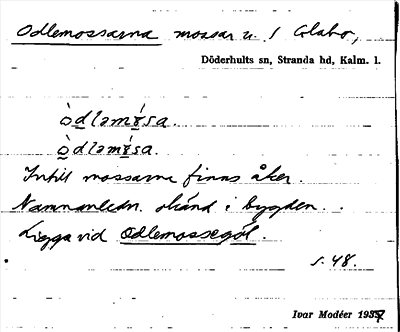 Odlemossarna mossar u. / Glabo,
Döderhults sn, Stranda hd, Kalm. l.
ò̀dləmɤ́sa.
ò̀dləmɤ́sa.
Intill mossarna finns åker.
Namnanledn. okänd i bygden.
Ligga vid Odlemossegöl
s. 48.
Ivar Modéer 1937